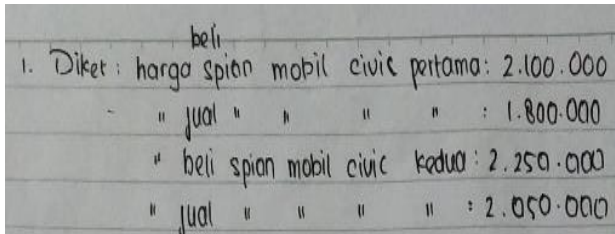 beli
1. Diket : harga spion mobil civic pertama : 2.100.000
- " jual " " " " : 1.800.000
" beli spion mobil civic kedua : 2.250.000
" jual " " " " : 2.050.000